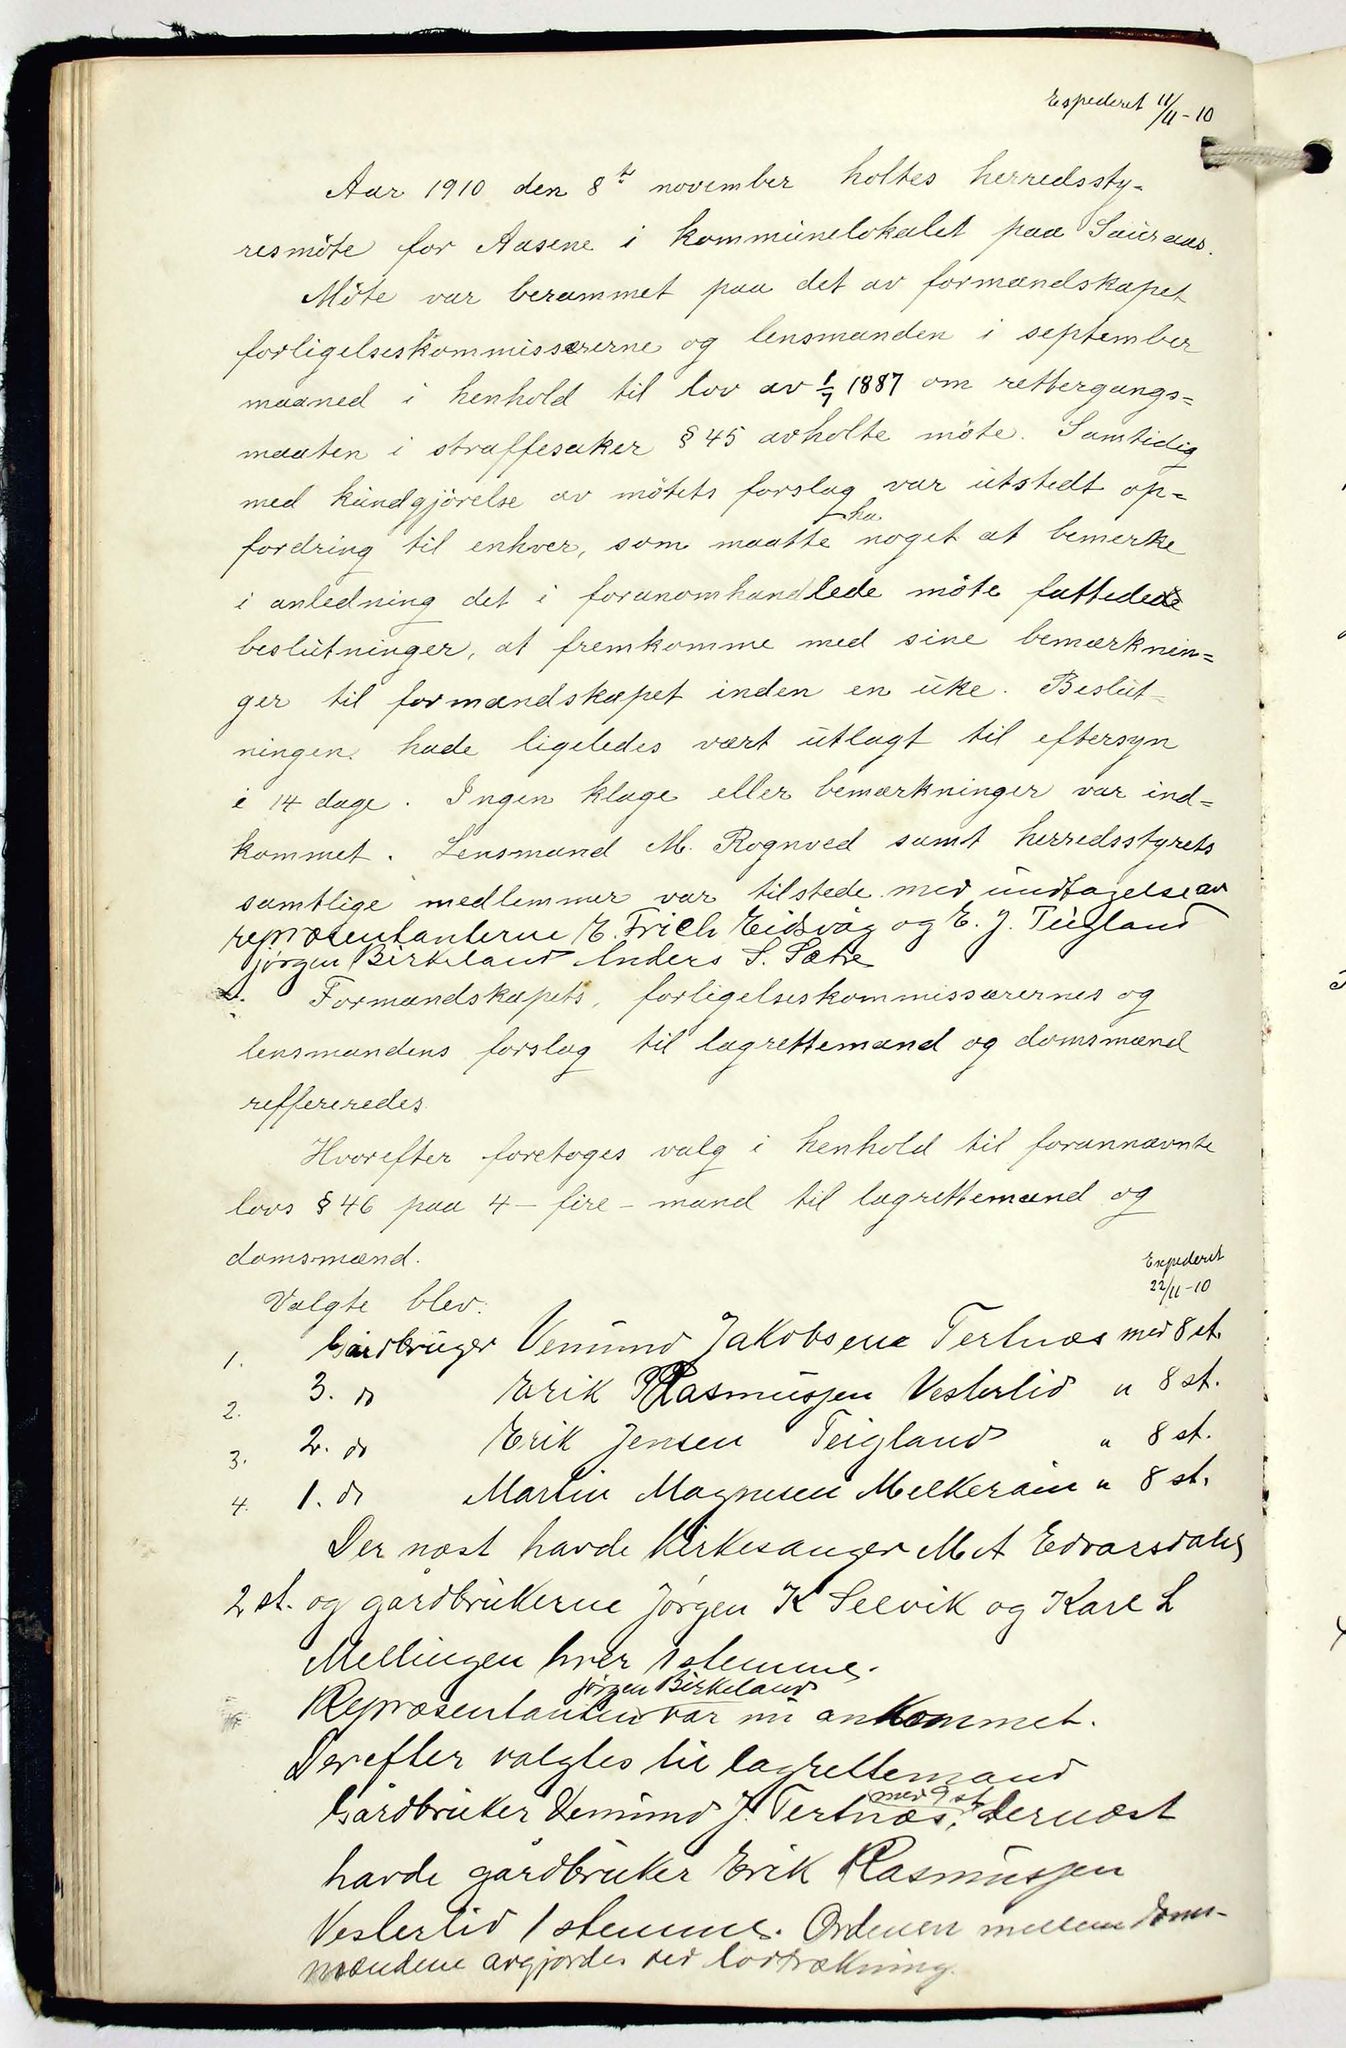 Expederet 11/11-10
Aar 1910 den 8de november holtes herredssty-
resmöte for Aasene i kommunelokalet paa Sauraas.
Möte var berammet paa det av formandskapet
forligelseskommissærerne og lensmanden i september
maaned i henhold til lov av 1/7 1887 om rettergangs=
maaten i straffesaker § 45 avholte möte. Samtidig
med kundgjörelse av mötets forslag var utstedt op=
ha
fordring til enhver, som maatte noget at bemerke
i anledning det i foranomhandlede möte fattede
beslutninger, at fremkomme med sine bemærknin=
ger til formandskapet inden en uke. Beslut-
ningen hade ligeledes vært utlagt til eftersyn
i 14 dage. Ingen klage eller bemærkninger var ind=
kommet. Lensmand M. Rognved samt herredsstyrets
samtlige medlemmer var tilstede med undtagelse av
repræsentanterne E. Frich Eidsvåg og E. J. Teigland
Jörgen Birkeland Anders S. Sætre
Formandskapets, forligelseskommissærernes og
lensmandens forslag til lagrettemænd og domsmænd
reffereredes.
Hvorefter foretoges valg i henhold til forannævnte
lovs § 46 paa 4 - fire - mænd til lagrettemænd og
domsmænd.
Expederet
22/11-10
Valgte blev:
1. Gårdbruger Vemund Jakobsen Tertnæs med 8 st.
2. 3. do Erik Rasmussen Vestrelid " 8 st.
3. 2. do Erik Jensen Teigland " 8 st.
4. 1. do Martin Magnesen Melkeråen " 8 st.
Der næst havde Kirkesanger M A Edvarsdahl
2 st. og gårdbrukerne Jörgen K Selvik og Karl L
Mellingen hver 1 stemme.
Jörgen Birkeland
Repræsentanten var nu ankommet.
Derefter valgtes til lagrettemand
med 9 st.
Gårdbruker Vemund J. Tertnæs, Dernæst
havde gårdbruker Erik Rasmussen
Vestrelid 1 stemme. Ordenen mellem doms-
mændene avgjordes ved lodtrækning.